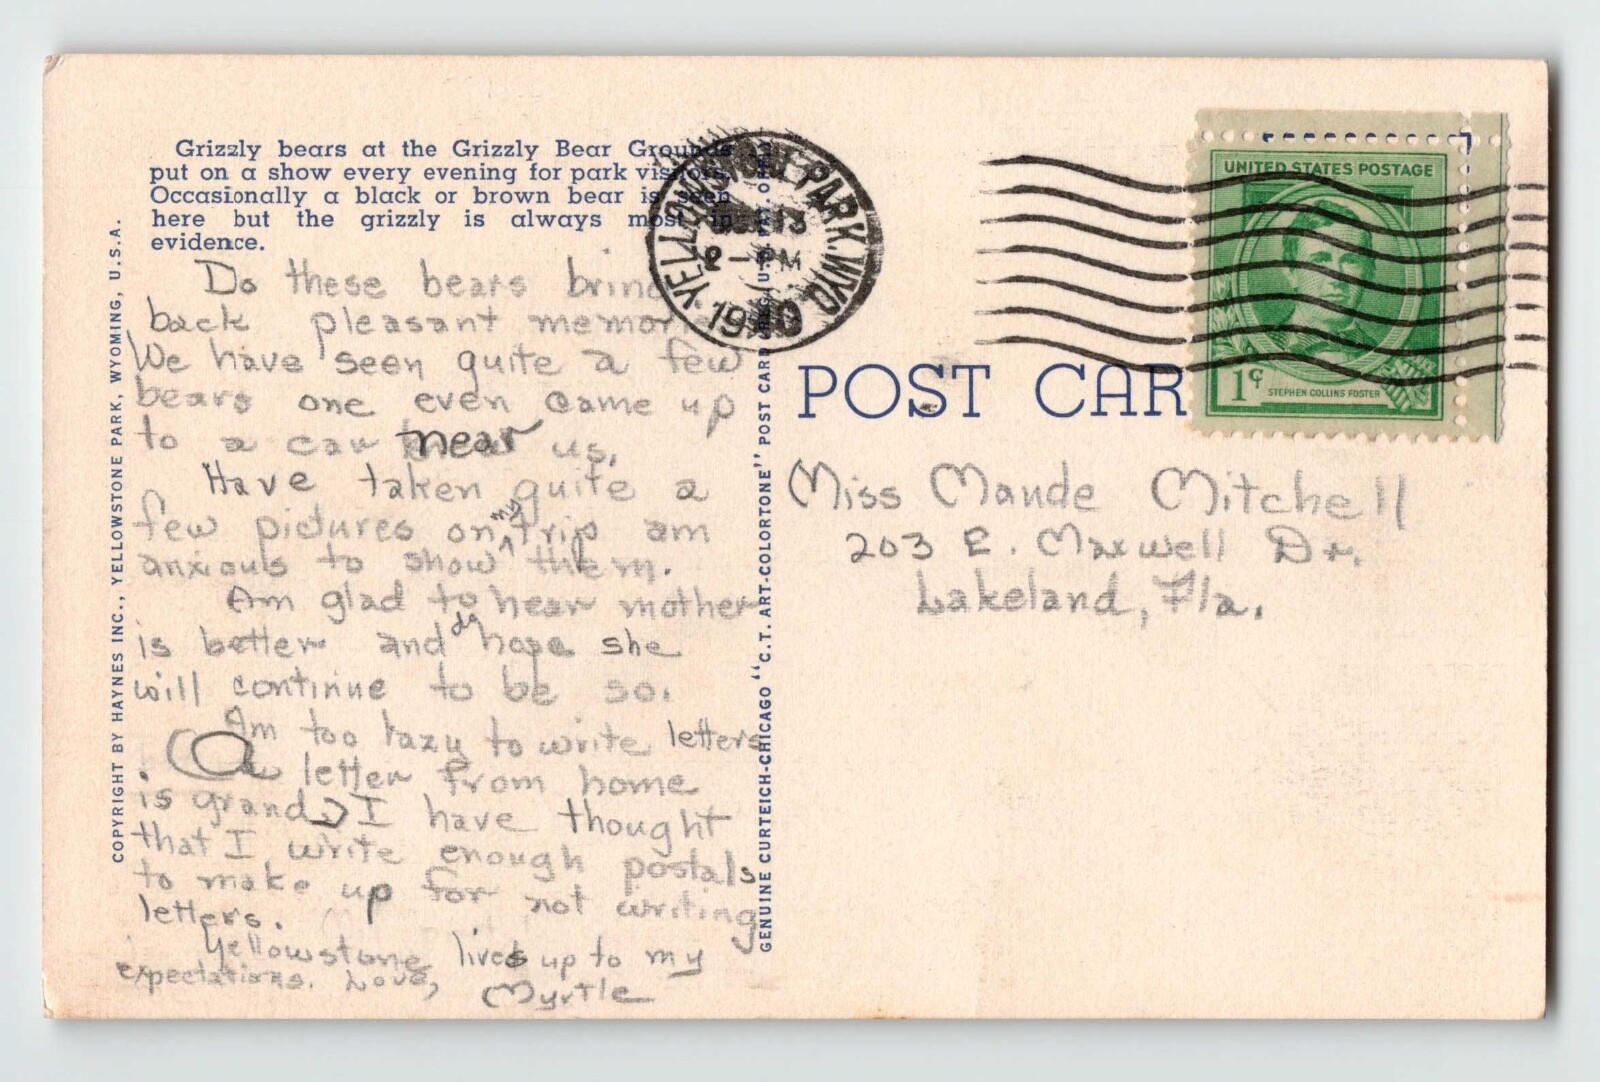 Grizzly bears at the Grizzly Bear Grounds
put on a show every evening for park visitors.
Occasionally a black or brown bear is seen
here but the grizzly is always most in
evidence.
Do these bears bring
back pleasant memories
We have seen quite a few
bears one even came up
to a car near us.
Have taken quite a
few pictures on my trip am
anxious to show them.
Am glad to hear mother
is better and do hope she
will continue to be so.
Am too lazy to write letters
a letter from home
is grand, I have thought
that I write enough postals
to make up for not writing
letters.
Yellowstone lives up to my
expectations. Love,
Myrtle
COPYRIGHT BY HAYNES INC., YELLOWSTONE PARK, WYOMING, U.S.A.
GENUINE CURTEICH-CHICAGO "C.T. ART-COLORTONE" POST CARD U.S. PAT. OFF.
YELLOWSTONE PARK. WYO.
13
2 - PM
1940
UNITED STATES POSTAGE
1¢
STEPHEN COLLINS FOSTER
POST CAR
Miss Maude Mitchell
203 E. Maxwell Dr.
Lakeland, Fla.